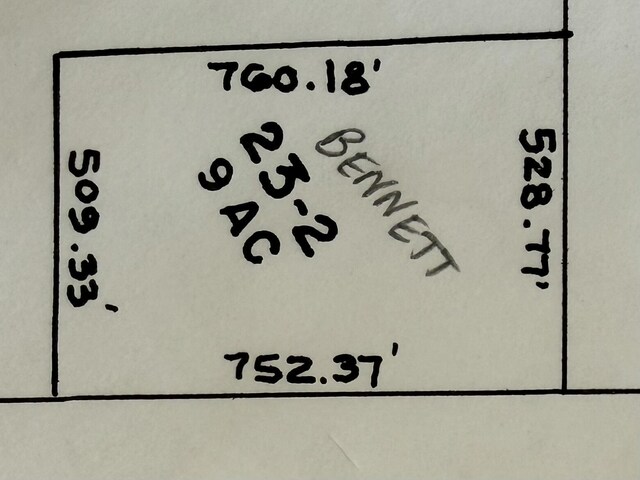 760.18'
509.33'
23-2
9 AC
BENNETT
528.77'
752.37'